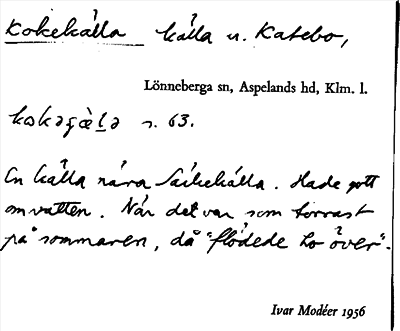 Kokekälla källa n. Katebo,
Lönneberga sn, Aspelands hd, Klm. l.
s. 63.
En källa nära Säikekälla. Hade gott
om vatten. När det var som torrast
på sommaren, då "flödede ho över".
Ivar Modéer 1956